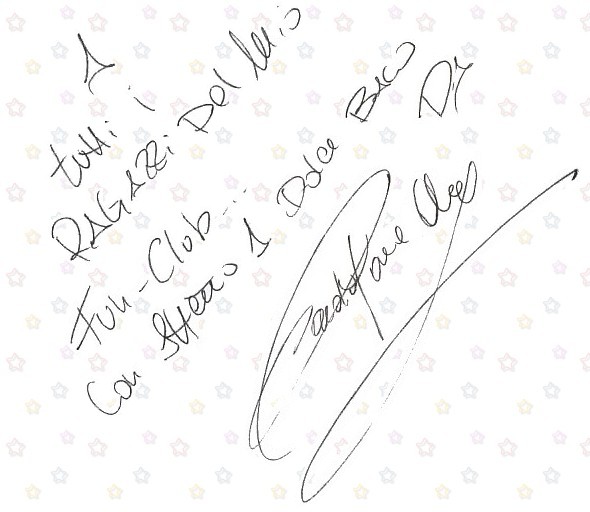 A
tutti i
RAGAZZi Del Mio
Fun-Club...
Con Affetto 1 Dolce BACO
Da